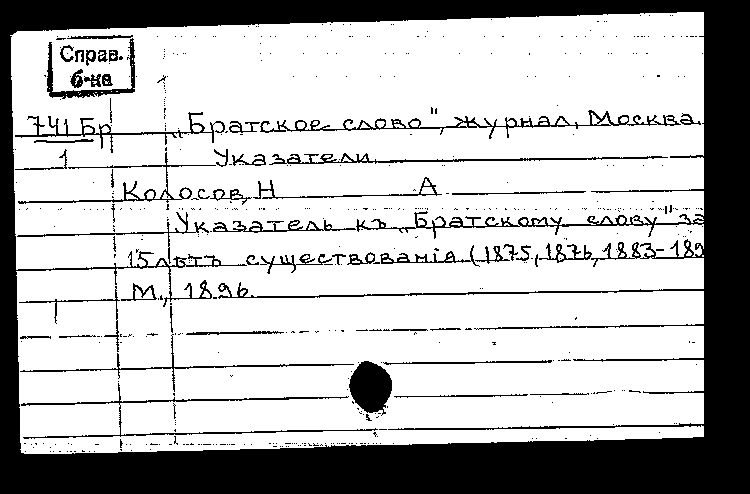 Справ.
б-ка
741 Бр „Братское слово", журнал, Москва.
1 Указатели.
Колосов, Н А
Указатель къ „Братскому слову" за
15 лѣтъ существованія (1875, 1876, 1883-189
М., 1896.